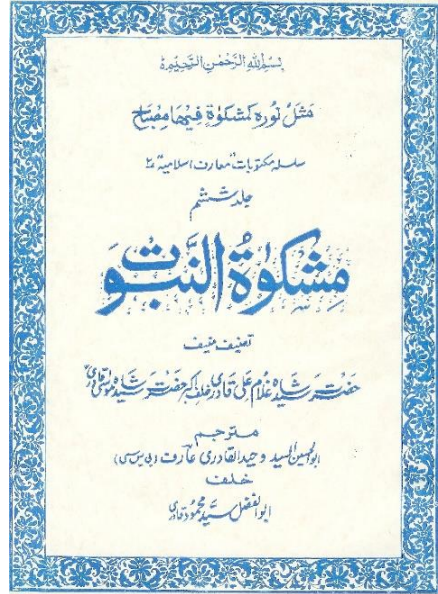 بسم الله الرحمن الرحیم
مثل نورہ کمشکوٰۃ فیھا مصباح
سلسلہ مکتوبات معارف اسلامیہ ۲
جلد ششم
مشکوٰۃ النبوت
تصنیف منیف
حضرت سید شاہ غلام علی قادری خلف اکبر حضرت سید شاہ موسیٰ قادری
مترجم
ابوالحسن السید وحید القادری عارف (بی یس سی)
خلف
ابوالفضل سید محمود قادری